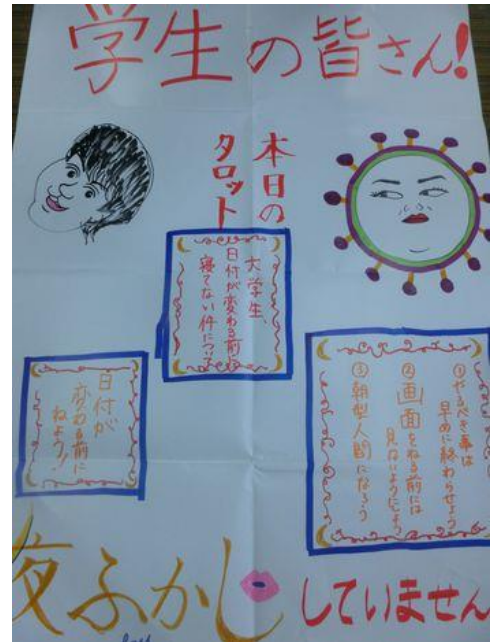 学生の皆さん!
本日の
タロット
大学生、
日付が変わる前に
寝てない件について
日付が
変わる前に
ねよう!
①やるべき事は
早めに終わらせよう
②画面をねる前には
見ないようにしよう
③朝型人間になろう
夜ふかし していません